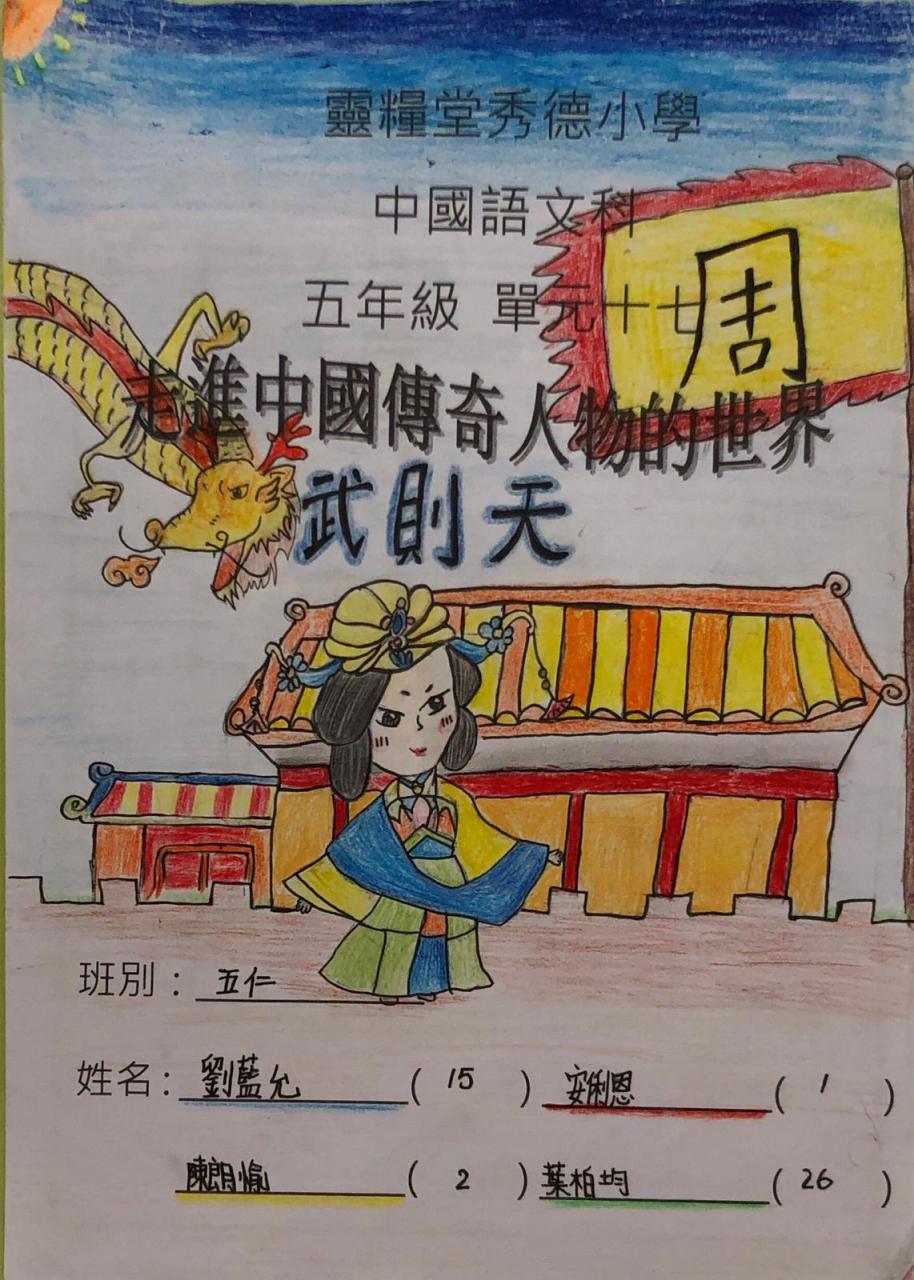 靈糧堂秀德小學
中國語文科
五年級 單元十七
周
走進中國傳奇人物的世界
武則天
班別： 五仁
姓名： 劉藍允 ( 15 ) 安俐恩 ( 1 )
陳朗愉 ( 2 ) 葉柏均 ( 26 )